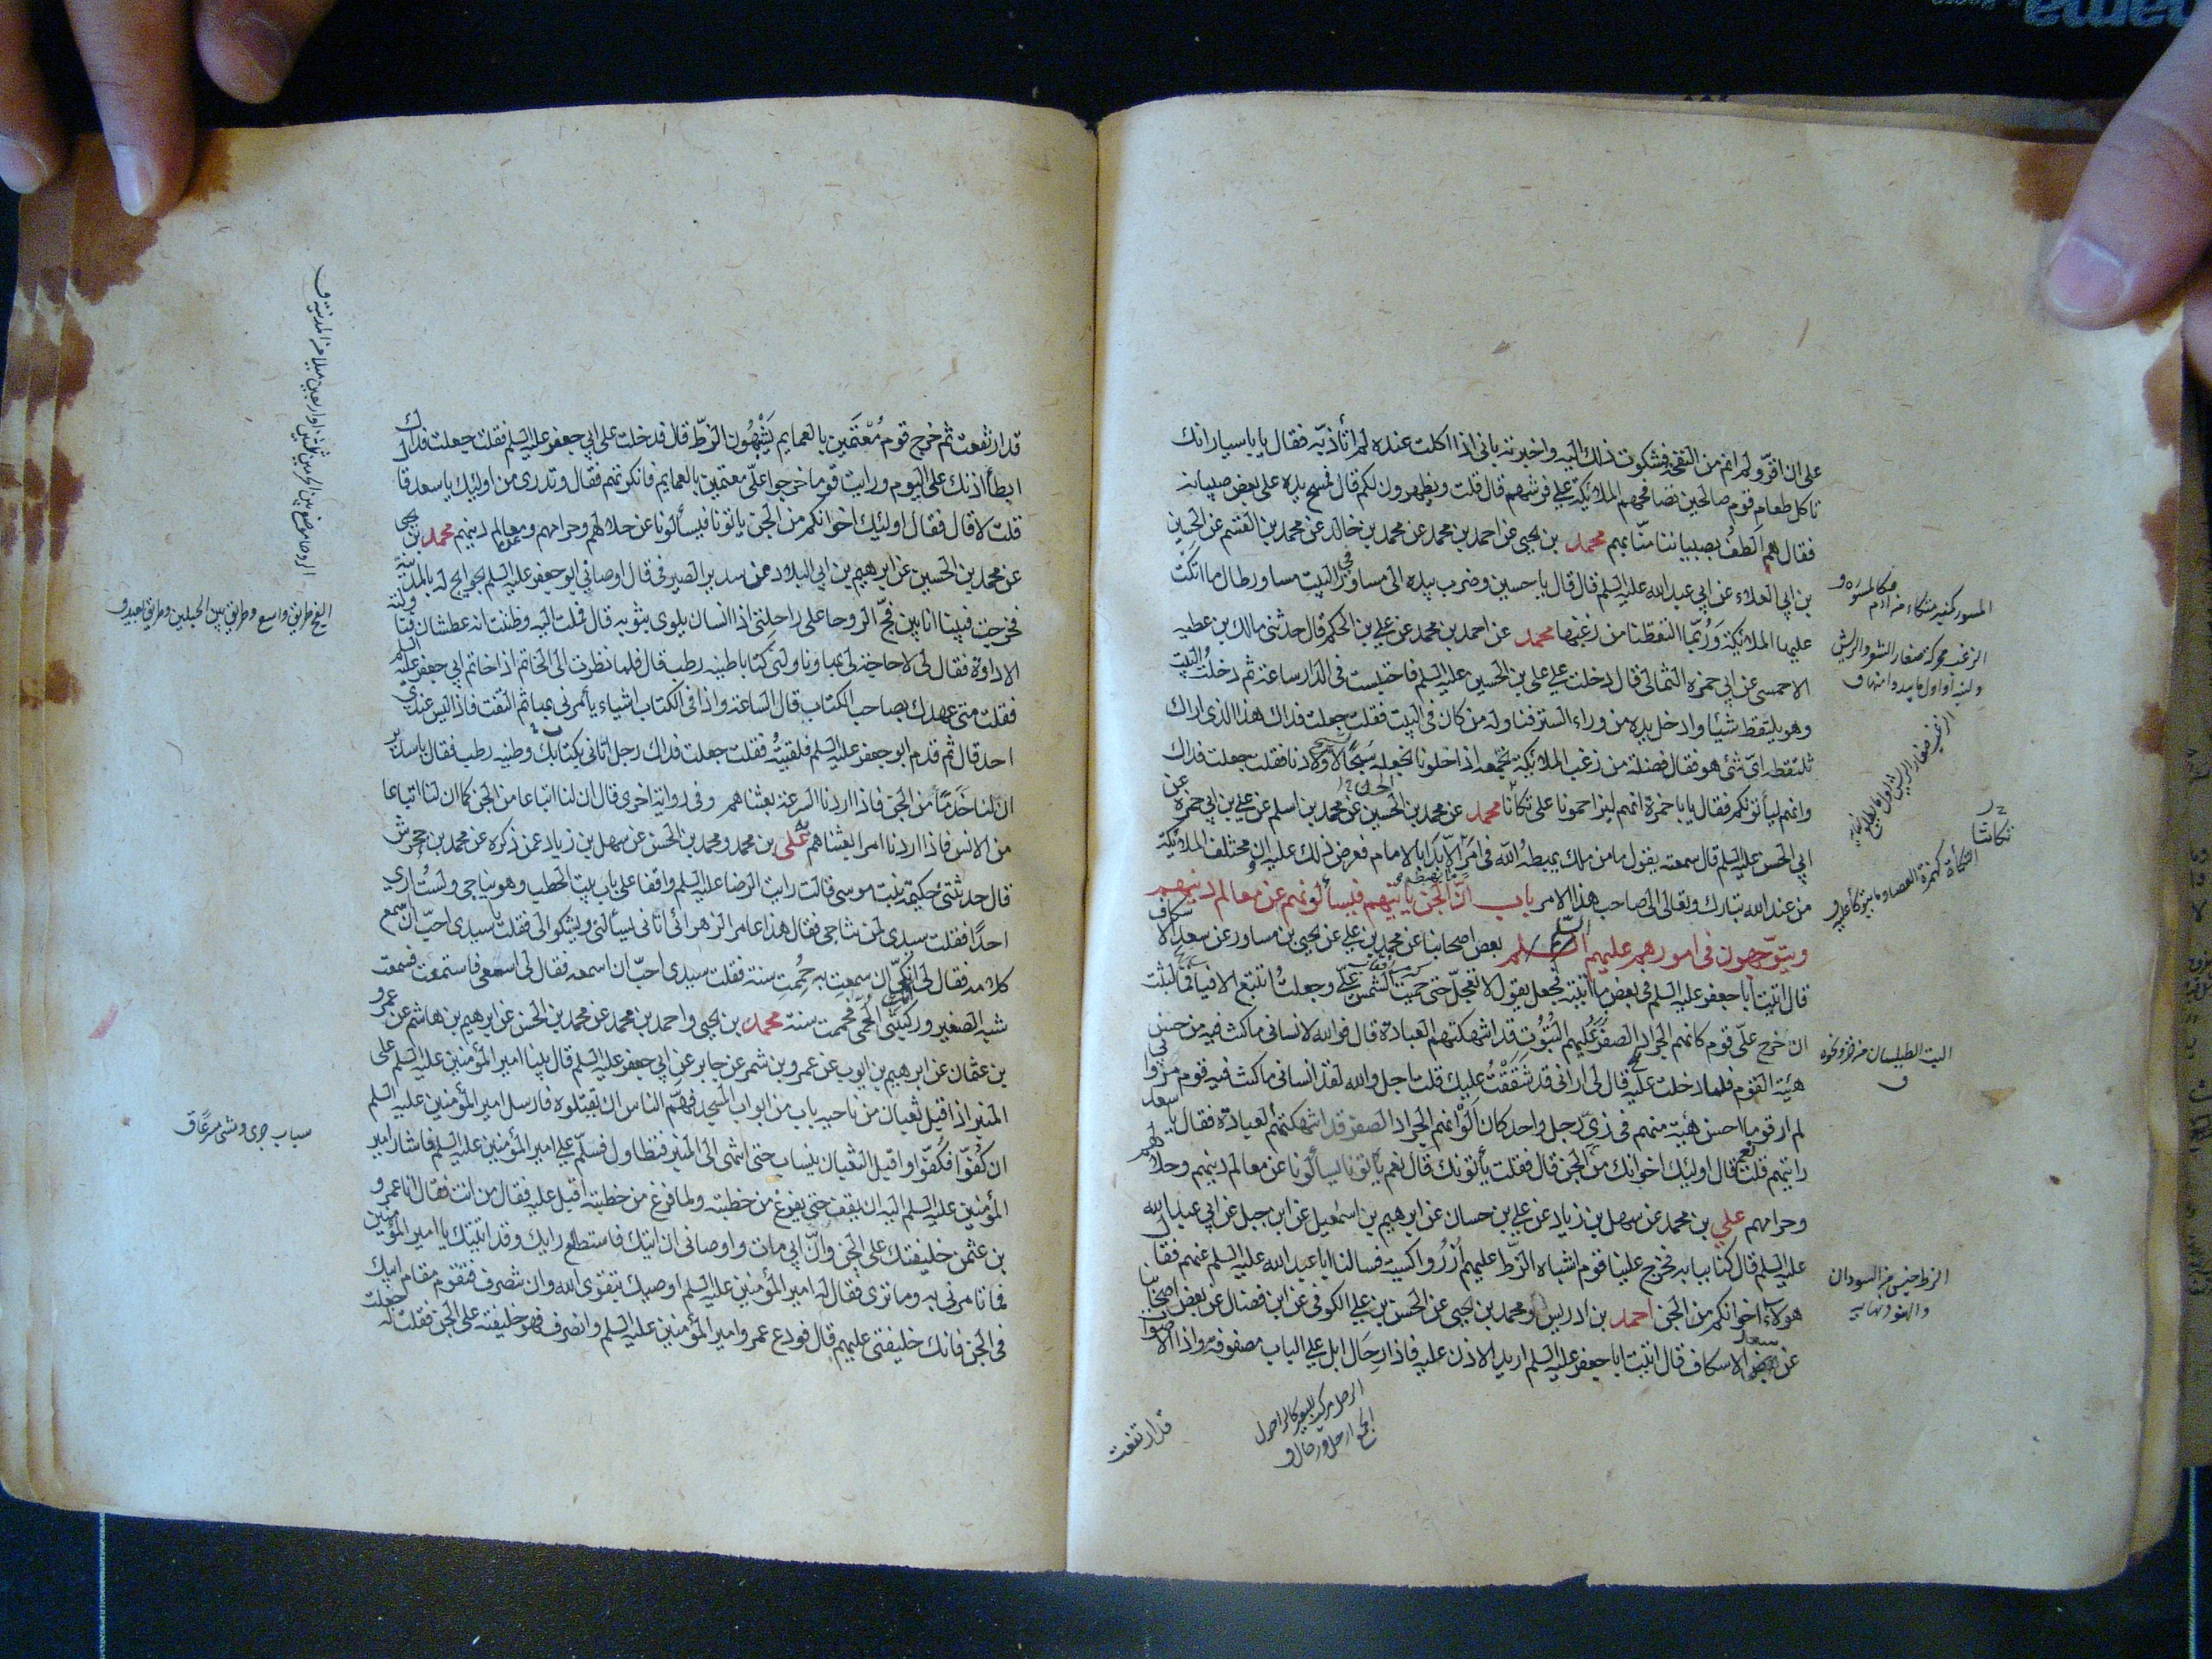 على ان اقرّ ولم انم من النفخ فشكوت ذلك اليه واخبرته بانى اذا اكلت عنده لم اتأذّ به فقال يابا سيار انك
تاكل طعام قوم صالحين تصافحهم الملائكة على فرشهم قال قلت ويظهرون لكم قال فمسح يده على بعض صبيانه
فقال هم الطف بصبياننا منّا بهم محمد بن يحيى عن احمد بن محمد عن محمد بن خالد عن محمد بن القسم عن الحسين
بن ابى العلاء عن ابى عبد الله عليه السلم قال قال يا حسين وضرب بيده الى مساور فى البيت مساور طال ما اتكت
عليها الملائكة وربّما التقطنا من زغبها محمد عن احمد بن محمد عن على بن الحكم قال حدثنى مالك بن عطيه
الاحمسى عن ابى حمزه الثمالى قال دخلت على على بن الحسين عليه السلم فاحتبست فى الدار ساعة ثم دخلتُ البيت
وهو يلتقط شيئا وادخل يده من وراء الستر فناوله من كان فى البيت فقلت جعلت فداك هذا الذى اراك
تلتقطه اىّ شئ هو فقال فضلة من زغب الملائكة نجمعه اذا خلونا نجعله سَبحًا لاولادنا فقلت جعلت فداك
وانهم ليأتونكم فقال يابا حمزة انهم ليزاحمونا على تكأتنا محمد عن محمد بن الحسين عن محمد بن اسلم عن على بن ابى حمزة عن
ابى الحسن عليه السلم قال سمعته يقول ما من ملك يهبطه الله فى امر الا بدأ بالامام فعرض ذلك عليه وان مختلف الملائكة
من عند الله تبارك وتعالى الى صاحب هذا الامر باب انّ الجن ياتيهم فيسألونهم عن معالم دينهم
ويتوجّهون فى امورهم عليهم السلم بعض اصحابنا عن محمد بن على عن يحيى بن مساور عن سعد الاسكاف
قال اتيت أبا جعفر عليه السلم فى بعض ما اتيته فجعل يقول لا تعجل حتى حميت الشمس علىّ وجعلتُ اتتبع الافياء فما لبثت
ان خرج علىّ قوم كانهم الجراد الصفر عليهم البتوت قد انتهكتهم العبادة قال فوالله لانسانى ما كنت فيه من حسن
هيئة القوم فلما دخلت عليه قال لى ارانى قد شققت عليك قلت اجل والله لقد انسانى ما كنت فيه قوم مرّوا بى
لم ار قوما احسن هيئة منهم فى زىّ رجل واحد كان الوانهم الجراد الصفر قد انتهكتهم العبادة فقال يا سعد
رايتهم قلت نعم قال اولئك اخوانك من الجن قال فقلت يأتونك قال نعم يأتونا يسألونا عن معالم دينهم وحلالهم
وحرامهم على بن محمد عن سهل بن زياد عن على بن حسان عن ابرهيم بن اسمعيل عن ابن جبل عن ابى عبد الله
عليه السلم قال كنا ببابه فخرج علينا قوم اشباه الزطّ عليهم اُزُر واكسية فسالنا ابا عبد الله عليه السلم عنهم فقال
هولاء اخوانكم من الجن احمد بن ادريس ومحمد بن يحيى عن الحسن بن على الكوفى عن ابن فضال عن بعض اصحابنا
عن سعد الاسكاف قال اتيت ابا جعفر عليه السلم اريد الاذن عليه فاذا رحال ابل على الباب مصفوفة واذا الاصوات
قد ارتفعت
المسور كمنبر متكاء من ادم كالمسورة و
الزغب محركة صغار الشعر والريش
ولينه او اول ما يبدو منهما ق
تكأتنا
التكأة كهمزة العصا وما يتوكأ عليه و
البت الطيلسان من خز ونحوه
ق
الزط جنس من السودان
والهنود
الرحل مركب للبعير كالراحول
الجمع ارحل ورحال و
قد ارتفعت ثم خرج قوم مُعْتمّين بالعمايم يَشْبَهُون الزطّ قال فدخلت على ابى جعفر عليه السلم فقلت جعلت فداك
ابطأ اذنك على اليوم ورايت قوما خرجوا علىّ معتمين بالعمايم فانكرتهم فقال وتدرى من اولئك يا سعد قال
قلت لا قال فقال اولئك اخوانكم من الجن ياتونا فيسألونا عن حلالهم وحرامهم ومعالم دينهم محمد بن يحيى
عن محمد بن الحسين عن ابرهيم بن ابى البلاد عن سدير الصيرفى قال اوصانى ابو جعفر عليه السلم بحوايج له بالمدينة
فخرجت فبينا انا بين فجّ الروحا على راحلتى اذا انسان يلوى بثوبه قال فملت اليه وظننت انه عطشان فناولته
الاداوة فقال لى لا حاجة لى بها وناولنى كتابا طينه رطب قال فلما نظرت الى الخاتم اذا خاتم ابى جعفر عليه السلم
فقلت متى عهدك بصاحب الكتاب قال الساعة واذا فى الكتاب اشياء يأمرنى بها ثم التفت فاذا ليس عندى
احد قال ثم قدم ابو جعفر عليه السلم فلقيتُه فقلت جعلت فداك رجل اتانى بكتابك وطينه رطب فقال يا سدير
ان لنا خَدَمًا من الجن فاذا اردنا السرعة بعثناهم وفى رواية اخرى قال ان لنا اتباعا من الجن كما ان لنا اتباعا
من الانس فاذا اردنا امرا بعثناهم على بن محمد ومحمد بن الحسن عن سهل بن زياد عمن ذكره عن محمد بن جحرش
قال حدثتنى حكيمة بنت موسى قالت رايت الرضا عليه السلم واقفا على باب بيت الحطب وهو يناجى ولستُ ارى
احدًا فقلت سيدى لمن تناجى فقال هذا عامر الزهرائى اتانى يسألنى ويشكو الىّ فقلت يا سيدى احبّ ان اسمع
كلامه فقال لى انك ان سمعتِ به حُمِمتِ سنة فقلت سيدى احبّ ان اسمعه فقال لى اسمعى فاستمعت فسمعت
شبه الصفير وركبتنى الحُمّى فحممت سنة محمد بن يحيى واحمد بن محمد عن محمد بن الحسن عن ابرهيم بن هاشم عن عمرو
بن عثمان عن ابرهيم بن ايوب عن عمرو بن شمر عن جابر عن ابى جعفر عليه السلم قال بينا امير المؤمنين عليه السلم على
المنبر اذ اقبل ثعبان من ناحيه باب من ابواب المسجد فهمّ الناس ان يقتلوه فارسل امير المؤمنين عليه السلم
ان كُفّوا فكُفّوا واقبل الثعبان ينساب حتى انتهى الى المنبر فتطاول فسلّم على امير المؤمنين عليه السلم فاشار امير
المؤمنين عليه السلم اليه ان يقف حتى يفرغ من خطبته ولما فرغ من خطبته اقبل عليه فقال من انت فقال انا عمرو
بن عثمن خليفتك على الجن وانّ ابى مات واوصانى ان اتيك فاستطلع رايك وقد اتيتك يا امير المؤمنين
فما تامرنى به وما ترى فقال له امير المؤمنين عليه السلم اوصيك بتقوى الله وان تنصرف فتقوم مقام ابيك
فى الجن فانك خليفتى عليهم قال فودع عمرو امير المؤمنين عليه السلم وانصرف فهو خليفته على الجن فقلت له جعلت
الروحا موضع بين الحرمين ثلثين او اربعين ميلا من المدينة ق
الفج طريق واسع وطريق بين الجبلين
ساب جرى ومشى مسرعًا ق